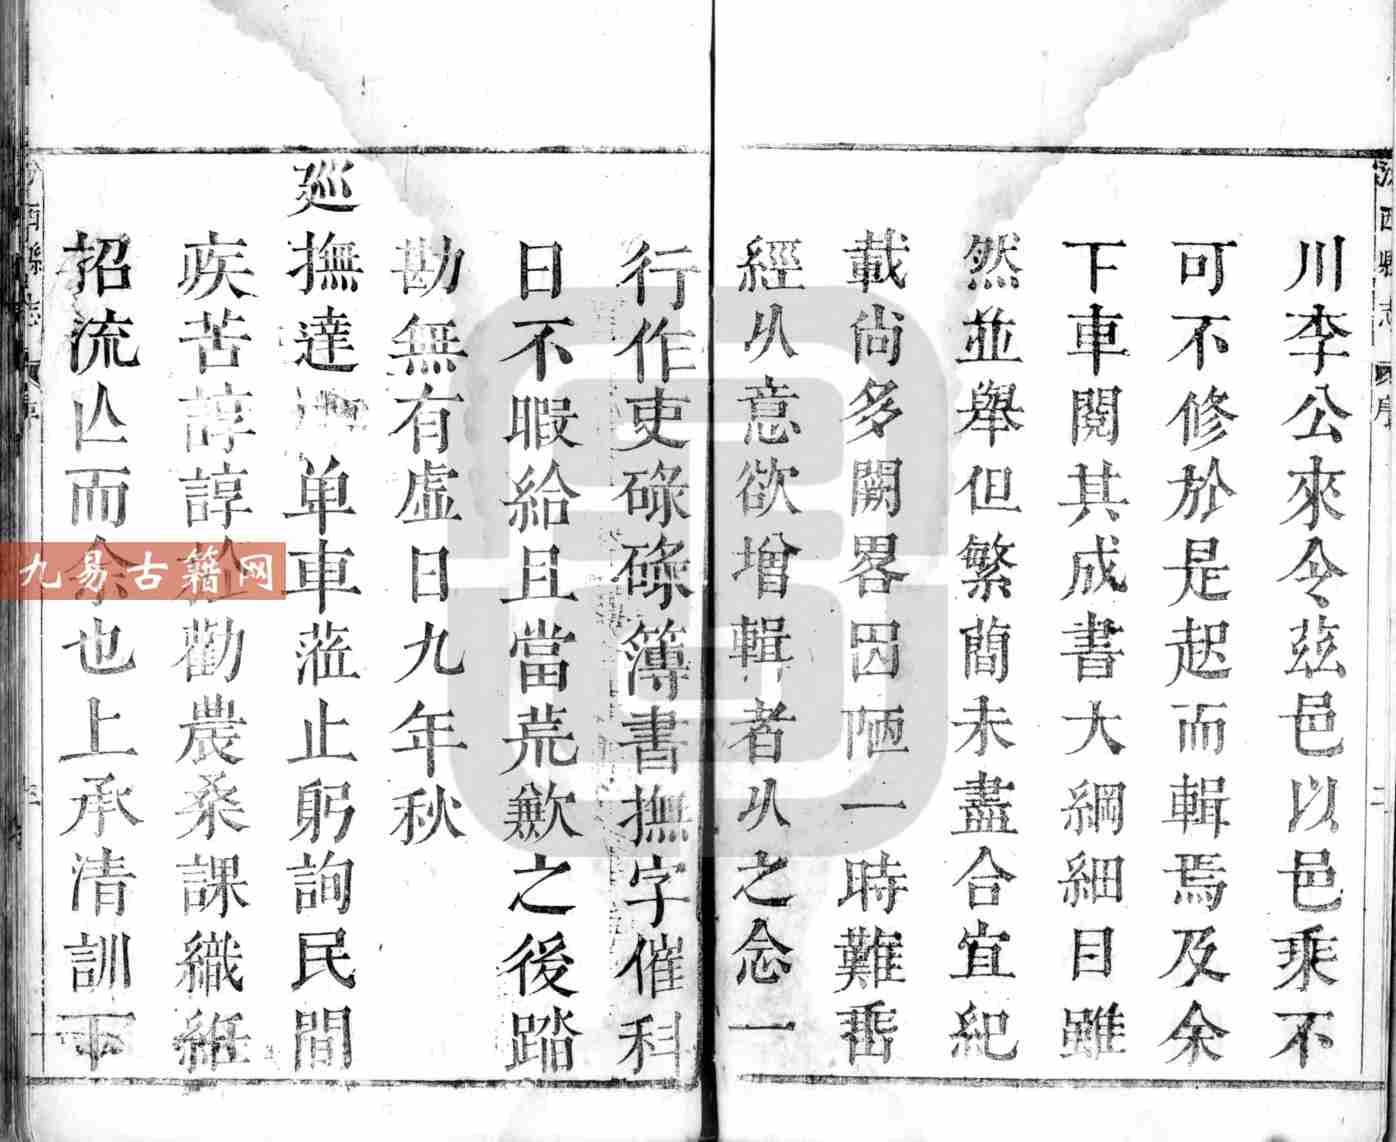 川李公來令茲邑以邑乘不
可不修於是起而輯焉及余
下車閱其成書大綱細目雖
然並舉但繁蕳未盡合宜紀
載尙多闕畧因陋一時難乖
經从意欲增輯者从之念一
行作吏碌碌簿書撫字催科
日不暇給且當荒歉之後踏
勘無有虛日九年秋
廵撫達
单車蒞止躬詢民間
疾苦諄諄於勸農桑課織絍
招流亾而余也上承清訓下
西縣志
序
二
九易古籍网